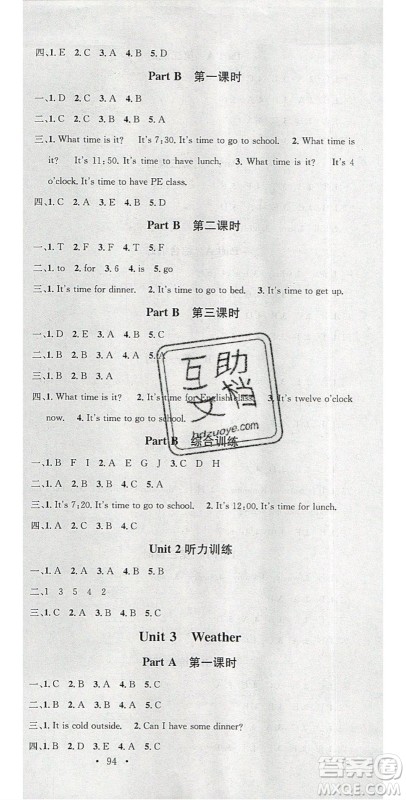 四、1. E　2. A　3. B　4. C　5. D
Part B　第一课时
一、1. D　2. C　3. A　4. B
二、1. A　2. B　3. A　4. C　5. D
三、1. What time is it?　It's 7:30. It's time to go to school.　2. What time is
it?　It's 11:50. It's time to have lunch.　3. What time is it?　It's 4
o'clock. It's time to have PE class.
四、1. C　2. A　3. E　4. B　5. D
Part B　第二课时
一、1. T　2. F　3. F　4. T　5. F
二、1. to　2. for　3. 6　4. is　5. go
三、1. It's time for dinner.　2. It's time to go to bed.　3. It's time to get up.
Part B　第三课时
一、1. B　2. A　3. B　4. A
二、1. A　2. B　3. B　4. A
三、1. What time is it?　2. It's time for English class.　3. It's twelve o'clock
now.　4. It's time to go to school.
Part B　综合训练
一、1. B　F　I　2. A　E　G　J　3. C　D　H
二、1. C　2. B　3. A　4. C　5. A
三、1. It's 7:20. It's time to go to school.　2. It's 12:00. It's time for lunch.
四、1. C　2. A　3. D　4. B
Unit 2 听力训练
一、1. A　2. A　3. B　4. A　5. B
二、1　3　5　4　2
三、1. A　2. B　3. B　4. A　5. A
Unit 3　Weather
Part A　第一课时
一、1. B　2. B　3. A　4. B
二、1. B　2. A　3. A　4. B　5. B
三、1. It is cold outside.　2. Can I have some dinner?
四、1. C　2. B　3. A　4. B　5. A
• 94 •
互助
文档
hdzuoye.com